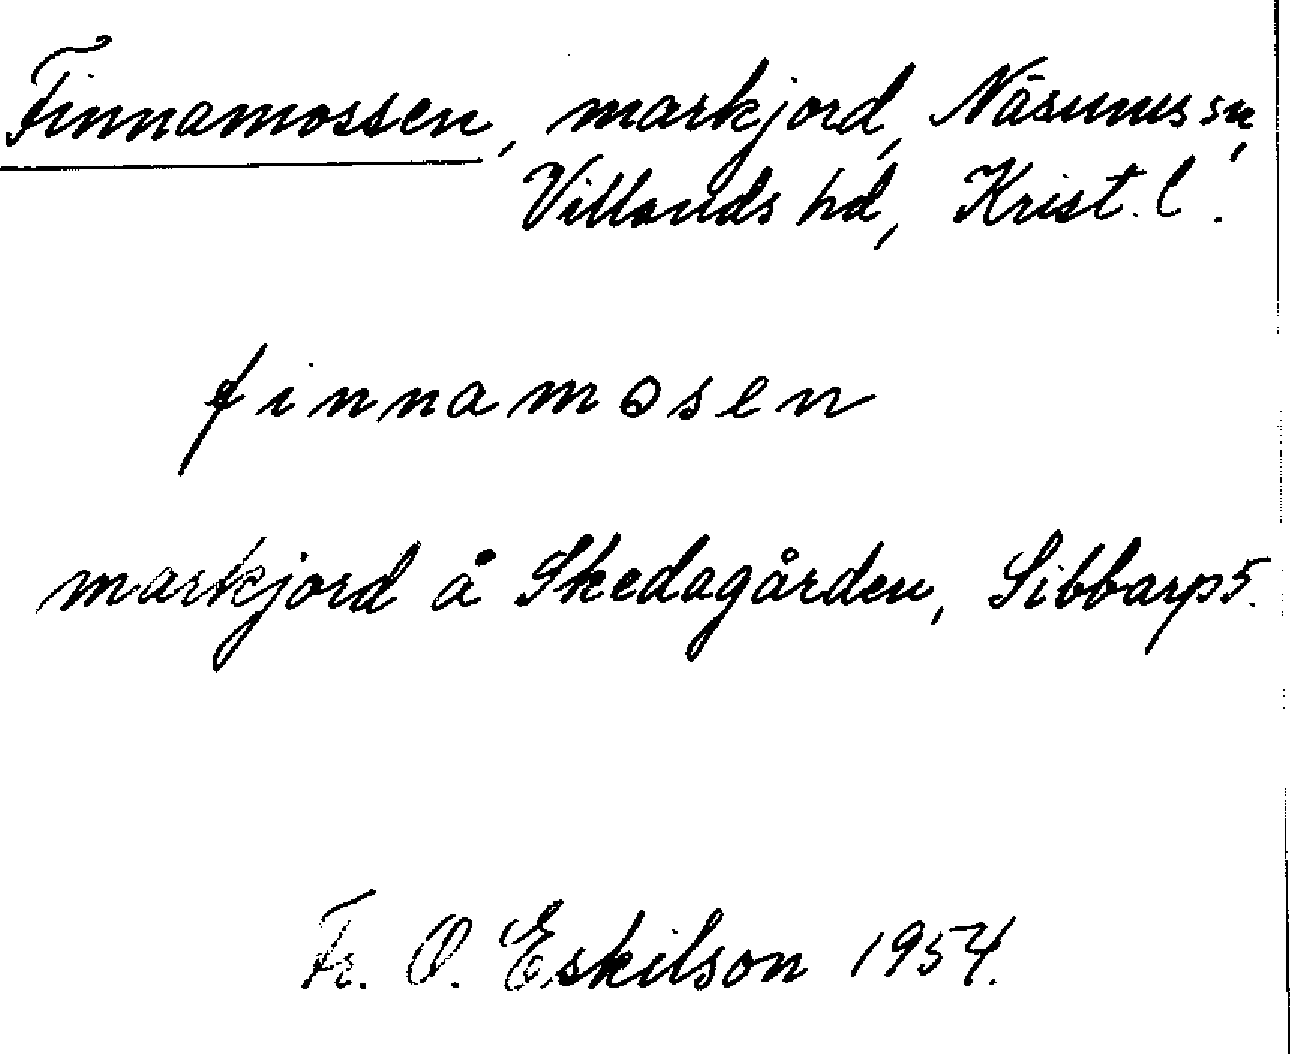 Finnamossen, markjord, Näsums sn,
Villands hd, Krist. l.
finnamosen
markjord å Skedagården, Sibbarp 5.
Fr. O. Eskilson 1954.